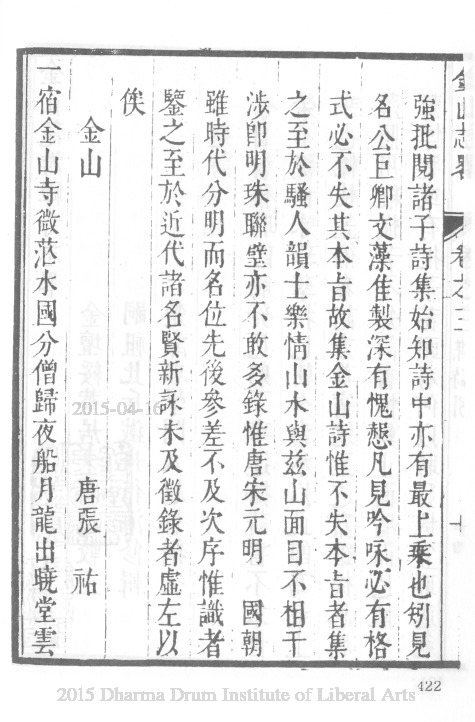 金山志畧 卷之三 十
強批閱諸子詩集始知詩中亦有最上乘也矧見
名公巨卿文藻佳製深有愧愬凡見吟咏必有格
式必不失其本旨故集金山詩惟不失本旨者集
之至於騷人韻士樂情山水與茲山面目不相干
涉卽明珠聯璧亦不敢多錄惟唐宋元明 國朝
雖時代分明而名位先後參差不及次序惟識者
鑒之至於近代諸名賢新詠未及徵錄者虛左以
俟
金山 唐張 祐
一宿金山寺微茫水國分僧歸夜船月龍出曉堂雲
2015-04-16
422
2015 Dharma Drum Institute of Liberal Arts